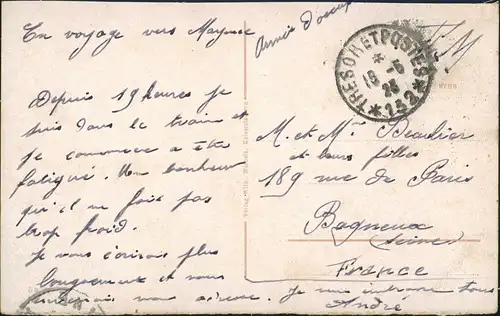 En voyage vers Mayence
Armée d'occup
F M
TRESOR ET POSTES
* 18 -5
23
* 242 *
Depuis 19 heures je
suis dans le train et
je commence a être
fatigué. Un bonheur
qu'il ne fait pas
trop froid.
Je vous écrirai plus
longuement et vous
mon adresse. Je vous embrasse tous
André
M. et Mme Beaulier
et leurs filles
189 rue de Paris
Bagneux
(Seine)
France